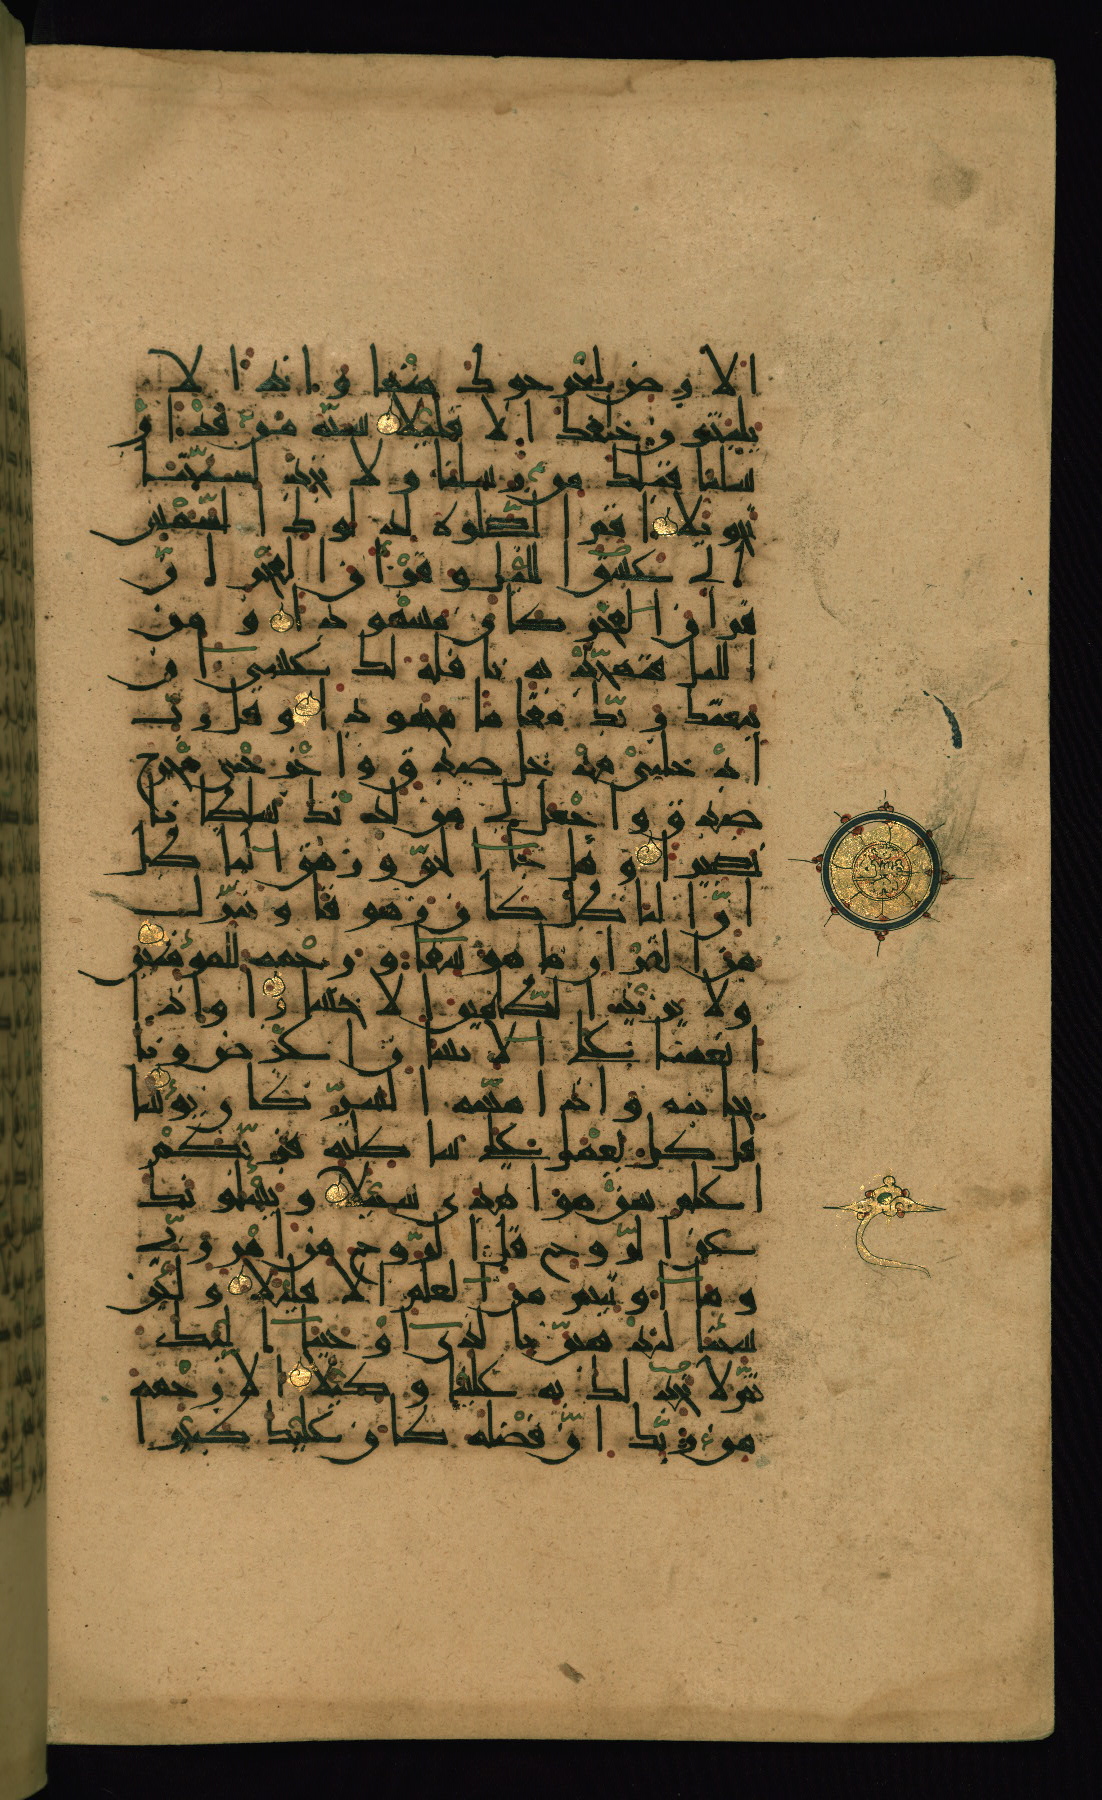 الارض ليخرجوك منها واذا لا
يلبثون خلفك الا قليلا سنة من قد ار
سلنا قبلك من رسلنا ولا تجد لسنتنا
تحويلا اقم الصلوة لدلوك الشمس
الى غسق اليل وقران الفجر ان
قران الفجر كان مشهودا ومن
اليل فتهجد به نافلة لك عسى ان
يبعثك ربك مقاما محمودا وقل رب
ادخلني مدخل صدق واخرجني مخرج
صدق واجعل لي من لدنك سلطانا
نصيرا وقل جاء الحق وزهق الباطل
ان الباطل كان زهوقا وننزل
من القران ما هو شفاء ورحمة للمؤمنين
ولا يزيد الظالمين الا خسارا واذا
انعمنا على الانسان اعرض ونا
بجانبه واذا مسه الشر كان يؤسا
قل كل يعمل على شاكلته فربكم
اعلم بمن هو اهدى سبيلا ويسئلونك
عن الروح قل الروح من امر ربي
وما اوتيتم من العلم الا قليلا ولئن
شئنا لنذهبن بالذي اوحينا اليك
ثم لا تجد لك به علينا وكيلا الا رحمة
من ربك ان فضله كان عليك كبيرا